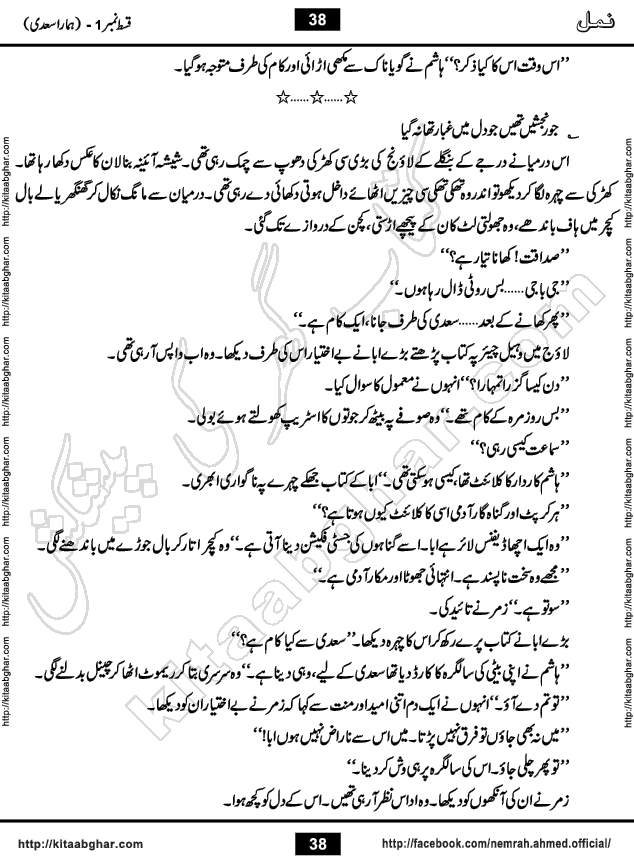 نمل
38
قسط نمبر 1 - (ہمارا سعدی)
’’اس وقت اس کا کیا ذکر؟‘‘ ہاشم نے گویا ناک سے مکھی اڑائی اور کام کی طرف متوجہ ہو گیا۔
☆......☆......☆
جو رنجشیں تھیں جو دل میں غبار تھا نہ گیا
اس درمیانے درجے کے بنگلے کے لاؤنج کی بڑی سی کھڑکی دھوپ سے چمک رہی تھی۔ شیشہ آئینہ بنا لان کا عکس دکھا رہا تھا۔
کھڑکی سے چہرہ لگا کر دیکھو تو اندر وہ تھکی تھکی سی چیزیں اٹھائے داخل ہوتی دکھائی دے رہی تھی۔ درمیان سے مانگ نکال کر گھنگھریالے بال
کیچر میں ہاف باندھے، وہ جھولتی لٹ کان کے پیچھے اڑستی، کچن کے دروازے تک گئی۔
’’صداقت! کھانا تیار ہے؟‘‘
’’جی باجی...... بس روٹی ڈال رہا ہوں۔‘‘
’’پھر کھانے کے بعد...... سعدی کی طرف جانا، ایک کام ہے۔‘‘
لاؤج میں وہیل چیئر پہ کتاب پڑھتے بڑے ابا نے بے اختیار اس کی طرف دیکھا۔ وہ اب واپس آ رہی تھی۔
’’دن کیسا گزرا تمہارا؟‘‘ انہوں نے معمول کا سوال کیا۔
’’بس روزمرہ کے کام تھے۔‘‘ وہ صوفے پہ بیٹھ کر جوتوں کا اسٹریپ کھولتے ہوئے بولی۔
’’سماعت کیسی رہی؟‘‘
’’ہاشم کاردار کا کلائنٹ تھا، کیسی ہو سکتی تھی۔‘‘ ابا کے کتاب جھکے چہرے پہ ناگواری ابھری۔
’’ہر کرپٹ اور گناہ گار آدمی اسی کا کلائنٹ کیوں ہوتا ہے؟‘‘
’’وہ ایک اچھا ڈیفنس لائر ہے ابا۔ اسے گناہوں کی جسٹی فکیشن دینا آتی ہے۔‘‘ وہ کیچر اتار کر بال جوڑے میں باندھنے لگی۔
’’مجھے وہ سخت ناپسند ہے۔ انتہائی جھوٹا اور مکار آدمی ہے۔‘‘
’’سو تو ہے۔‘‘ زمر نے تائید کی۔
بڑے ابا نے کتاب پرے رکھ کر اس کا چہرہ دیکھا۔ ’’سعدی سے کیا کام ہے؟‘‘
’’ہاشم نے اپنی بیٹی کی سالگرہ کا کارڈ دیا تھا سعدی کے لیے، وہی دینا ہے۔‘‘ وہ سرسری بتا کر ریموٹ اٹھا کر چینل بدلنے لگی۔
’’تو تم دے آؤ۔‘‘ انہوں نے ایک دم اتنی امید اور منت سے کہا کہ زمر نے بے اختیار ان کو دیکھا۔
’’میں نہ بھی جاؤں تو فرق نہیں پڑتا۔ میں اس سے ناراض نہیں ہوں ابا!‘‘
’’تو پھر چلی جاؤ۔ اس کی سالگرہ پر ہی وش کر دینا۔‘‘
زمر نے ان کی آنکھوں کو دیکھا۔ وہ اداس نظر آ رہی تھیں۔ اس کے دل کو کچھ ہوا۔
http://kitaabghar.com
http://kitaabghar.com
http://kitaabghar.com
http://kitaabghar.com
http://kitaabghar.com
http://kitaabghar.com
http://kitaabghar.com
http://kitaabghar.com
http://kitaabghar.com
http://kitaabghar.com
http://kitaabghar.com
http://kitaabghar.com
کتاب گھر کی پیشکش
kitaabghar.com
http://kitaabghar.com
38
http://facebook.com/nemrah.ahmed.official/